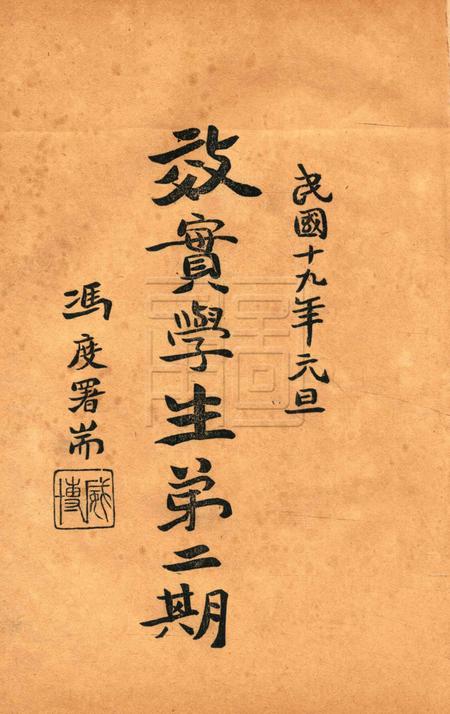 民國十九年元旦
效實學生弟二期
馮度署耑
威博